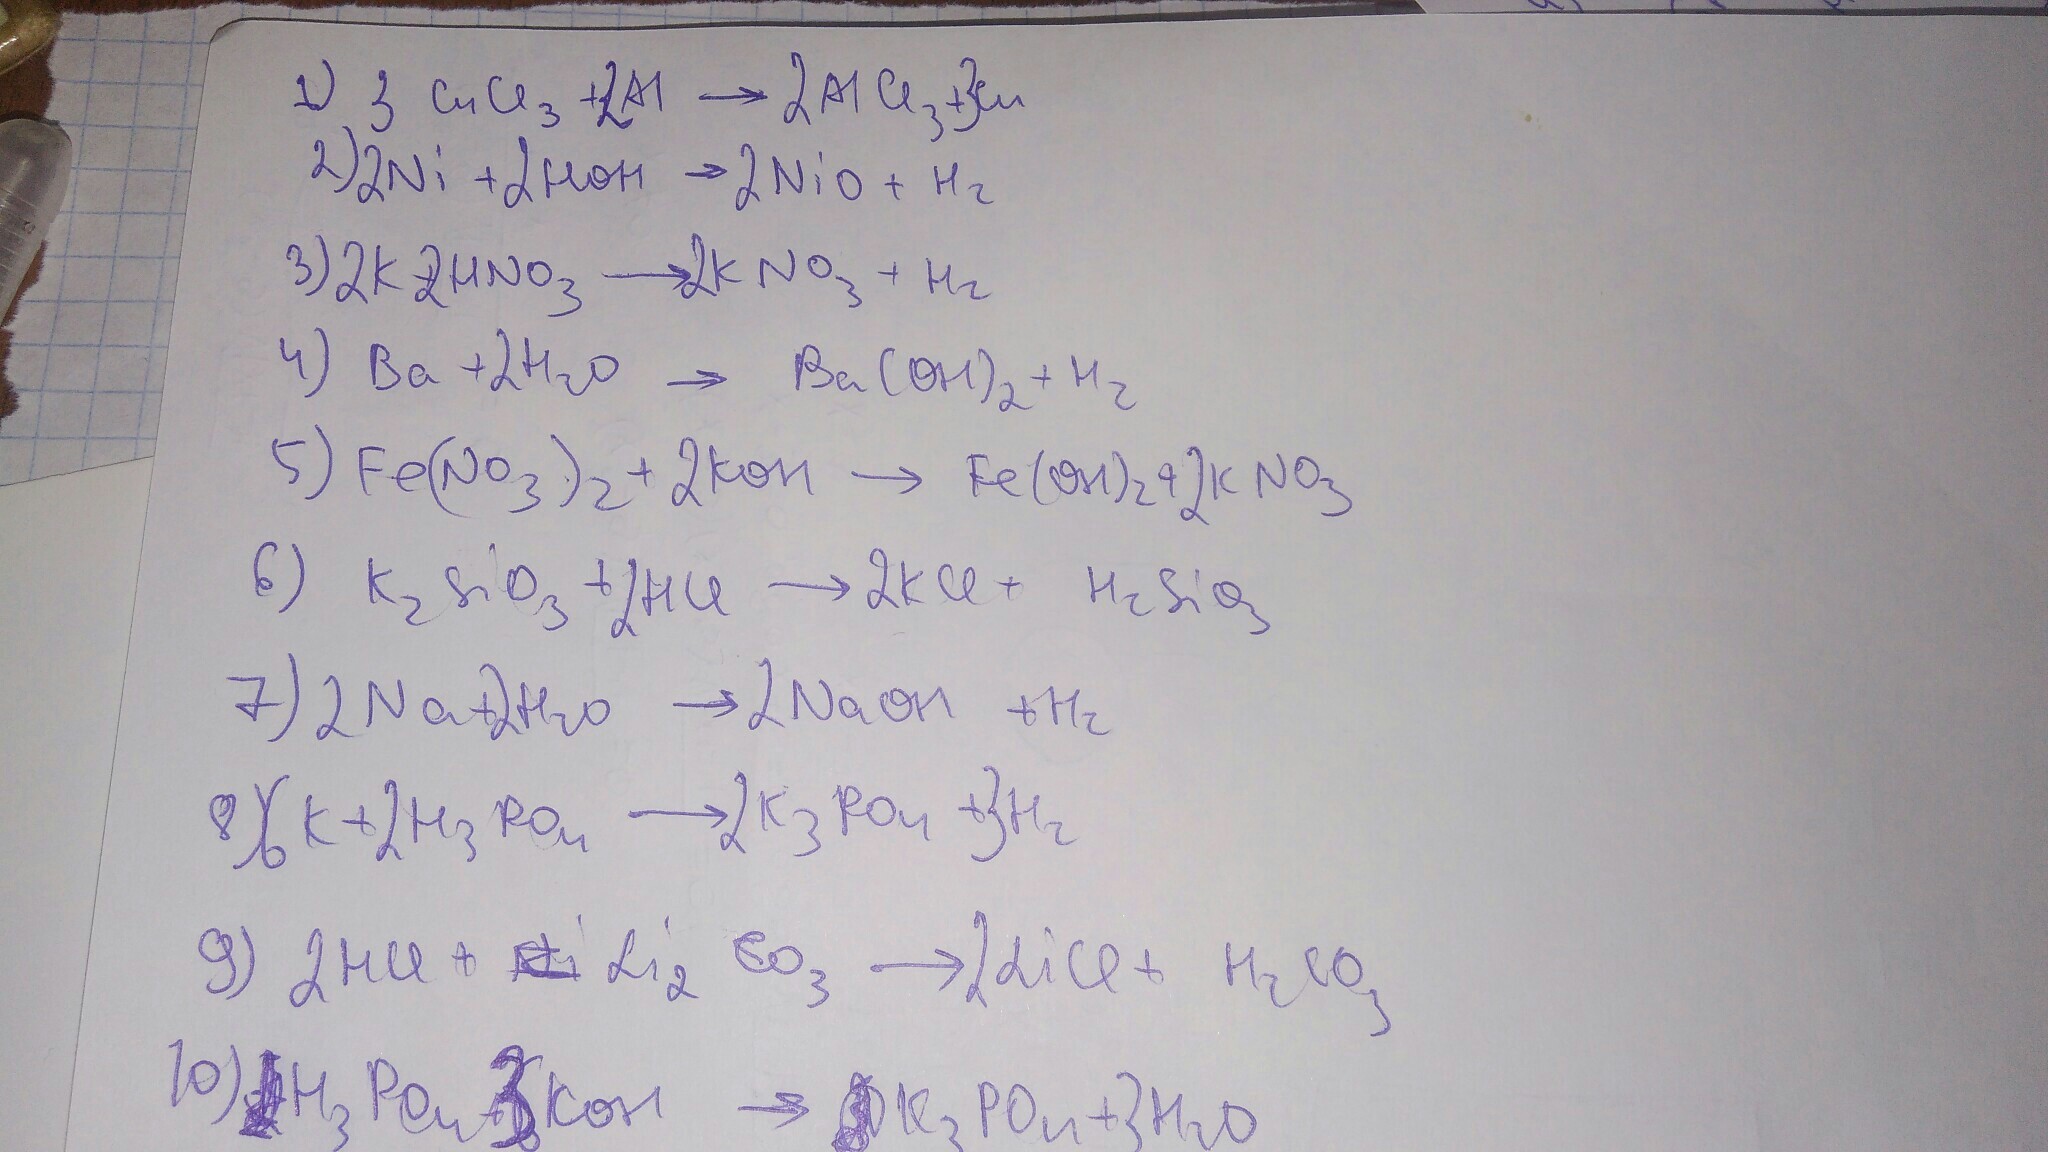 1) 3 CuCl3 + 2Al → 2AlCl3 + 3Cu
2) 2Ni + 2HOH → 2NiO + H2
3) 2K 2HNO3 → 2KNO3 + H2
4) Ba + 2H2O → Ba(OH)2 + H2
5) Fe(NO3)2 + 2KOH → Fe(OH)2 + 2KNO3
6) K2SiO3 + 2HCl → 2KCl + H2SiO3
7) 2Na + 2H2O → 2NaOH + H2
8) 6K + 2H3PO4 → 2K3PO4 + 3H2
9) 2HCl + Li2CO3 → 2LiCl + H2CO3
10) H3PO4 + 3KOH → K3PO4 + 3H2O